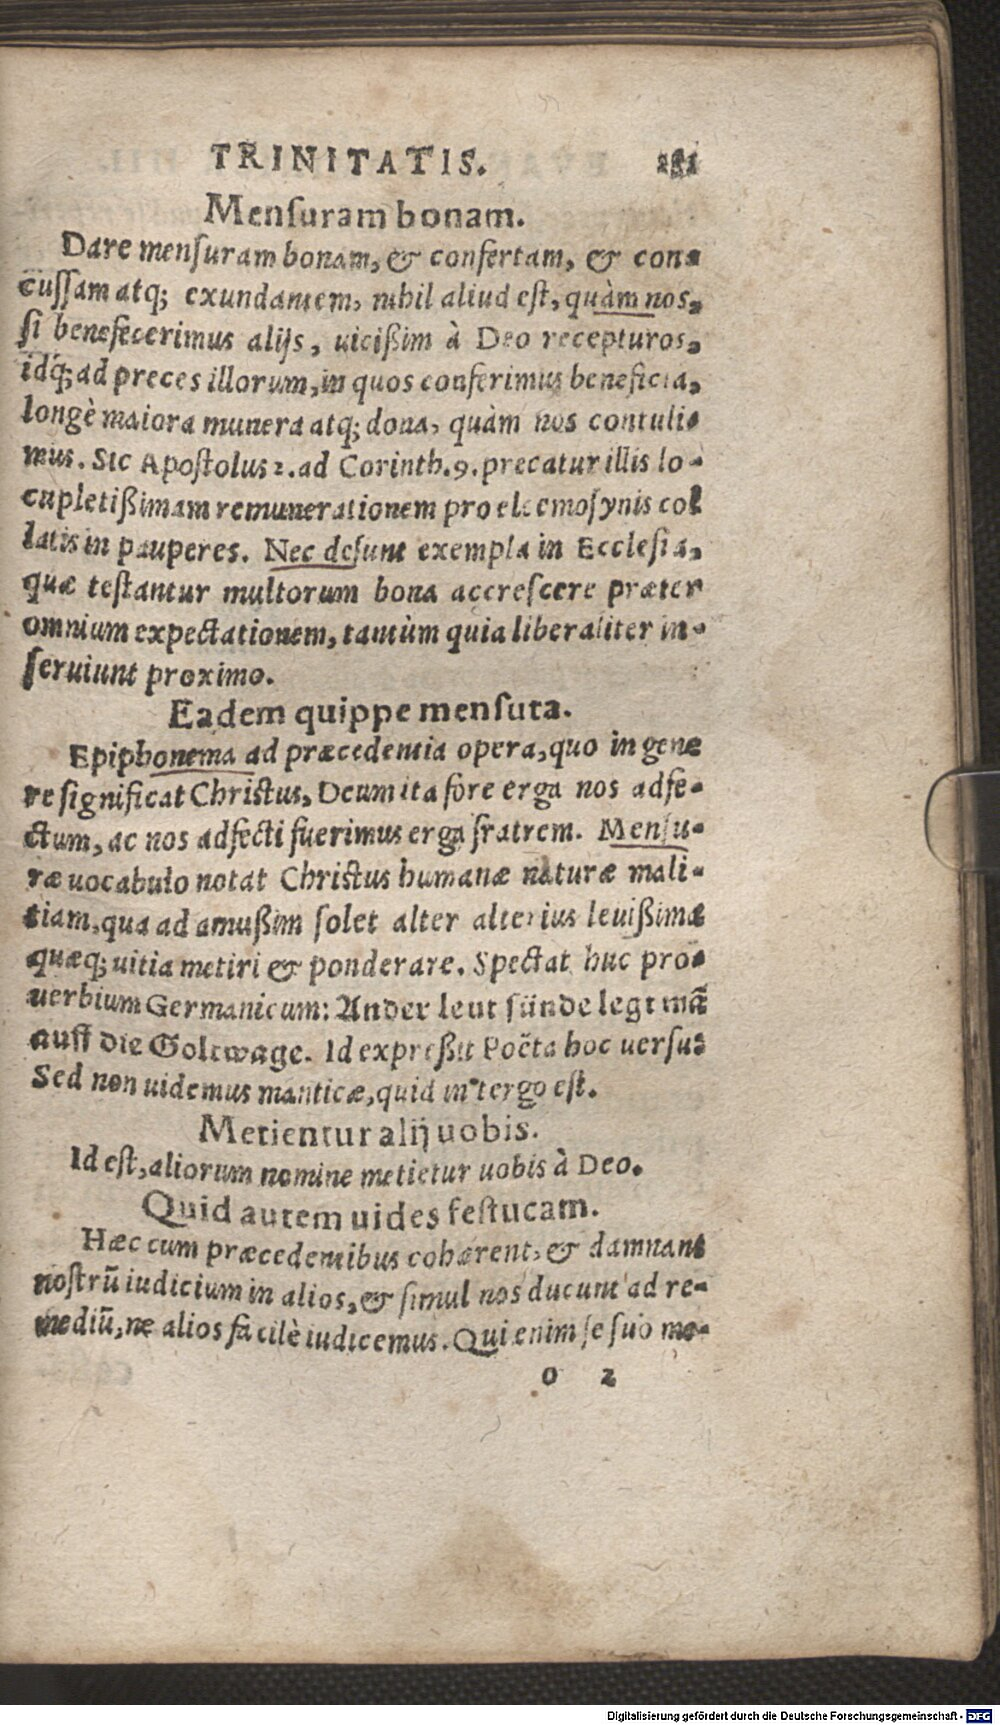 TRINITATIS.
Menſuram bonam.
Dare menſuram bonam, & confertam, & con-
cuſſam atq; exundantem, nihil aliud eſt, quàm nos,
ſi benefecerimus alijs, uicißim à Deo recepturos,
idq́; ad preces illorum, in quos conferimus beneficia,
longè maiora munera atq; dona, quàm nos contuli-
mus. Sic Apoſtolus 2. ad Corinth. 9. precatur illis lo-
cupletißimam remunerationem pro eleemoſynis col
latis in pauperes. Nec deſunt exempla in Eccleſia,
quæ teſtantur multorum bona accreſcere præter
omnium expectationem, tantùm quia liberaliter in-
ſeruiunt proximo.
Eadem quippe menſuta.
Epiphonema ad præcedentia opera, quo in gene
re ſignificat Chriſtus, Deum ita fore erga nos adfe-
ctum, ac nos adfecti fuerimus erga fratrem. Menſu-
ræ uocabulo notat Chriſtus humanæ naturæ mali-
tiam, qua ad amußim ſolet alter alterius leuißimæ
quæq; uitia metiri & ponderare. Spectat huc pro-
uerbium Germanicum: Ander leut ſünde legt mã
auff die Goltwage. Id expreßit Poëta hoc uerſu:
Sed non uidemus manticæ, quid in tergo eſt.
Metientur alij uobis.
Id eſt, aliorum nomine metietur uobis à Deo.
Quid autem uides feſtucam.
Hæc cum præcedentibus cohærent, & damnant
noſtrũ iudicium in alios, & ſimul nos ducunt ad re-
mediũ, ne alios facilè iudicemus. Qui enim ſe ſuo mo-
o 2
Digitalisierung gefördert durch die Deutsche Forschungsgemeinschaft - DFG